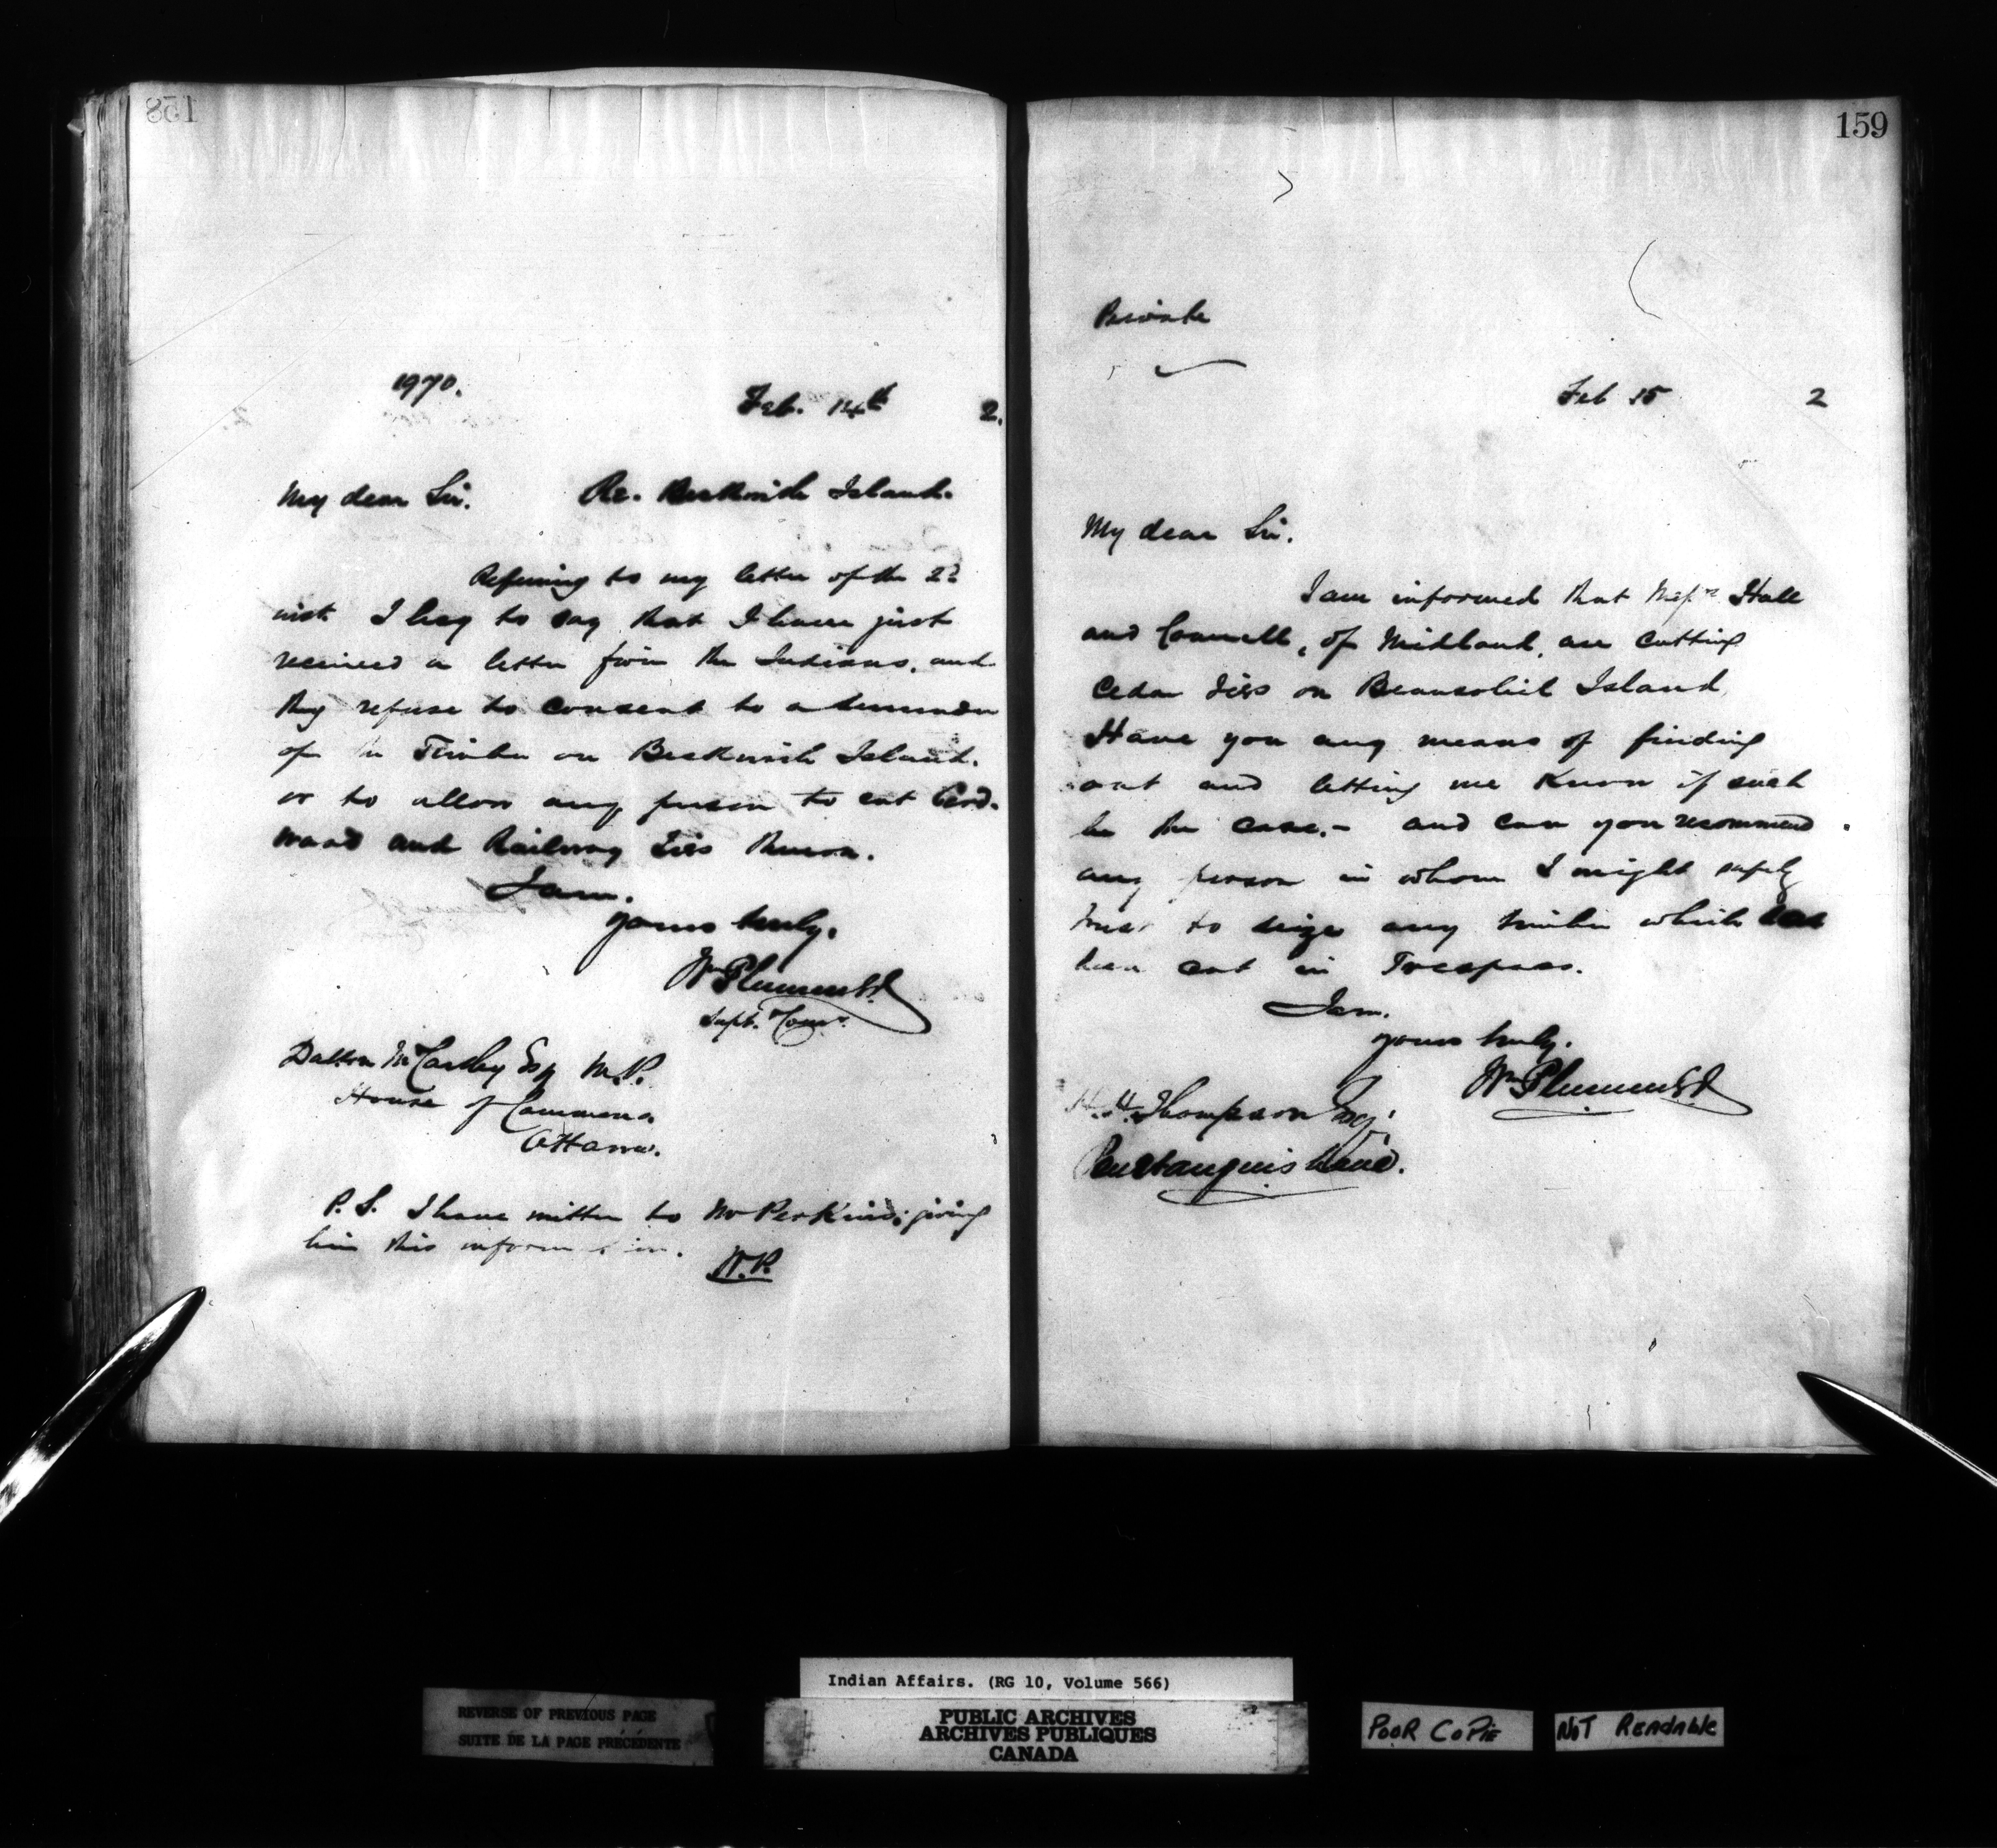 158
1970.
Feb. 14th 2.
My dear Sir. Re. Beckwith Island.
Referring to my letter of the 2d
inst I beg to say that I have just
received a letter from the Indians, and
they refuse to consent to a surrender
of the Timber on Beckwith Island.
or to allow any person to cut Cord-
wood and Railway Ties thereon.
I am.
yours truly.
Wm Plummer
Supt. Comr.
Dalton McCarthy Esq M.P.
House of Commons
Ottawa.
P.S. I have written to Mr Perkins giving
him this information.
W.P.
159
Private
Feb 15 2
My dear Sir.
I am informed that Messrs Hall
and , of Midland, are cutting
Cedar Ties on Beausoliel Island
Have you any means of finding
out and letting me Know if such
be the case.- and can you recommend
any person in whom I might safely
trust to seize any timber which has
been cut in Trespass.
I am.
yours truly.
Wm Plummer
H.H. Thompson Esq.
Penetanguishene.
Indian Affairs. (RG 10, Volume 566)
REVERSE OF PREVIOUS PAGE
SUITE DE LA PAGE PRÉCÉDENTE
PUBLIC ARCHIVES
ARCHIVES PUBLIQUES
CANADA
POOR COPIE
NOT READABLE